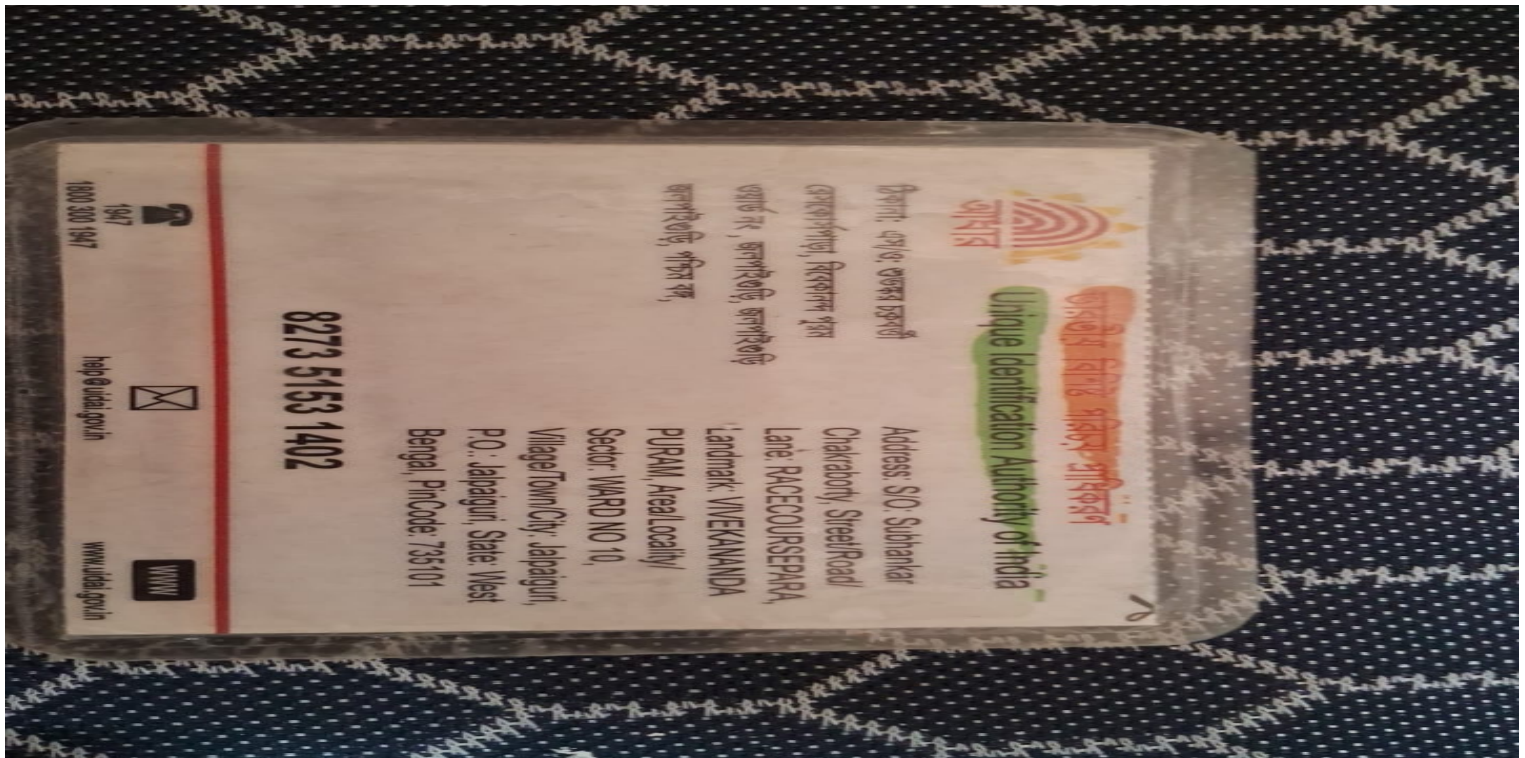 ভারতীয় বিশিষ্ট পরিচয় প্রাধিকরণ
Unique Identification Authority of India
আধার
ঠিকানা: এস/ও: শুভঙ্কর চক্রবর্তী
রেসকোর্সপাড়া, বিবেকানন্দ পুরম
জলপাইগুড়ি, জলপাইগুড়ি
জলপাইগুড়ি, পশ্চিম বঙ্গ,
Address: S/O: Subhankar
Chakraborty, Street/Road/
Lane: RACECOURSEPARA,
Landmark: VIVEKANANDA
PURAM, Area/Locality/
Sector: WARD NO 10,
Village/Town/City: Jalpaiguri,
P.O.: Jalpaiguri, State: West
Bengal, PinCode: 735101
8273 5153 1402
1947
1800 300 1947
help@uidai.gov.in
WWW
www.uidai.gov.in